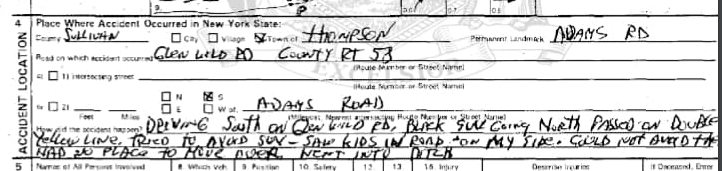 4 Place Where Accident Occurred in New York State:
County SULLIVAN ☐ City ☐ Village ☒ Town of THOMPSON Permanent Landmark ADAMS RD
Road on which accident occurred GLEN WILD RD COUNTY RT 53
(Route Number or Street Name)
at ☐ 1) intersecting street
(Route Number or Street Name)
☐ N ☒ S
or ☐ 2) ☐ E ☐ W of ADAMS ROAD
Feet Miles (Milepost, Nearest intersecting Route Number or Street Name)
How did the accident happen? DRIVING South on Glen Wild RD, BLACK SUV Going North PASSED ON DOUBLE
Yellow Line, TRIED TO AVOID SUV - SAW KIDS IN ROAD ON MY SIDE. COULD NOT AVOID
HAD NO PLACE TO MOVE OVER, WENT INTO DITCH
ACCIDENT LOCATION
5 Names of All Persons Involved 8 Which Veh 9 Position 10 Safety 12 13 15 Injury Describe Injuries If Deceased, Enter